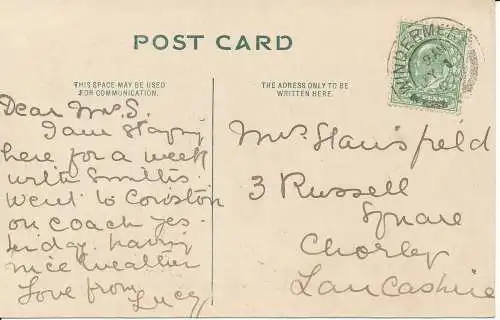 POST CARD
THIS SPACE MAY BE USED
FOR COMMUNICATION.
Dear Mrs. S.
I am staying
here for a week
with Smiths.
Went to Coniston
on coach yes-
terday. having
nice weather
Love from
Lucy
THE ADRESS ONLY TO BE
WRITTEN HERE.
Mrs. Stansfield
3 Russell
Square
Chorley
Lancashire
WINDERMERE